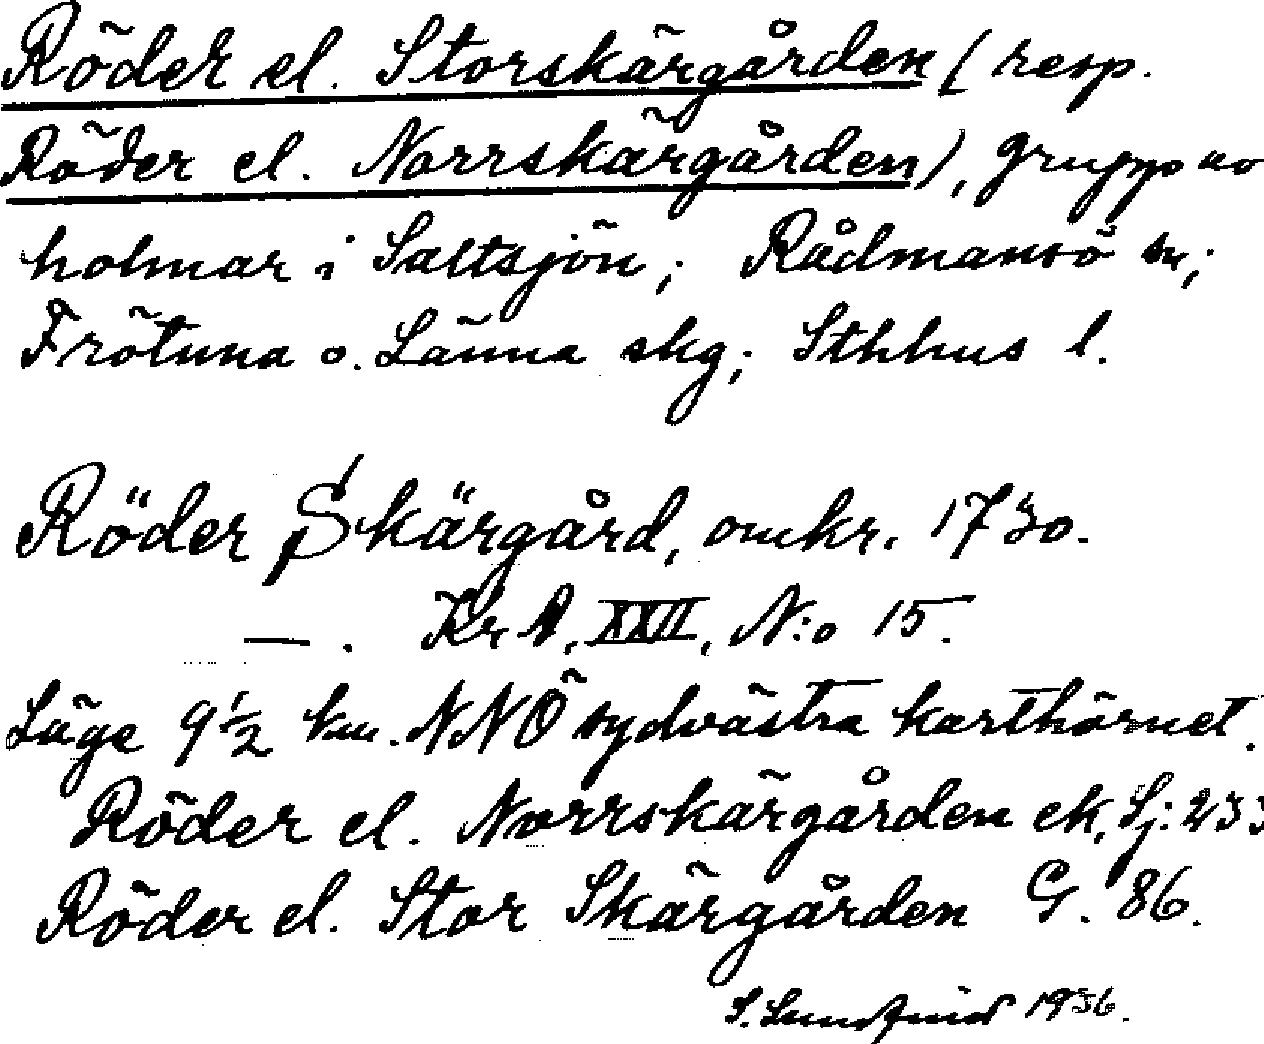 Röder el. Storskärgården (resp.
Röder el. Norrskärgården), grupp
holmar i Saltsjön; Rådmansö sn;
Frötuna o. Länna skg; Sthlms l.
Röder Skärgård, omkr. 1730.
—. Kr A, XXII, N:o 15.
Läge 9½ km. NNÖ sydvästra karthörnet.
Röder el. Norrskärgården ek, Sj: 233
Röder el. Stor Skärgården G. 86.
S. 1936.